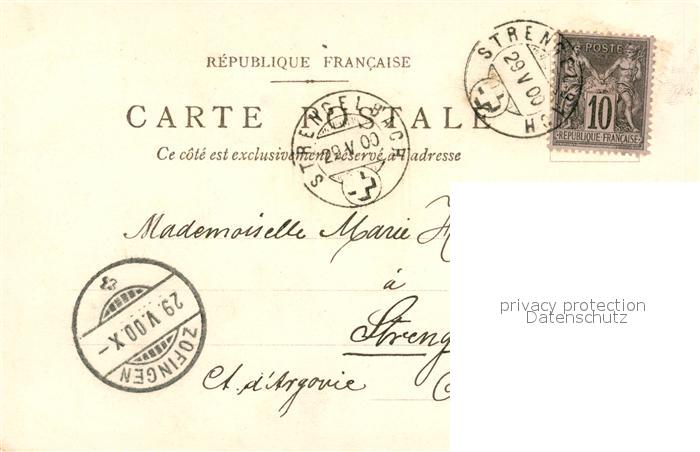 RÉPUBLIQUE FRANÇAISE
CARTE POSTALE
Ce côté est exclusivement réservé à l'adresse
STRENGELBACH
29 V 00
STRENGELBACH
29 V 00
POSTE
10
REPUBLIQUE FRANÇAISE
Mademoiselle Marie H
à
Streng
Ct. d'Argovie
ZOFINGEN
29 V. 00. X –
privacy protection
Datenschutz